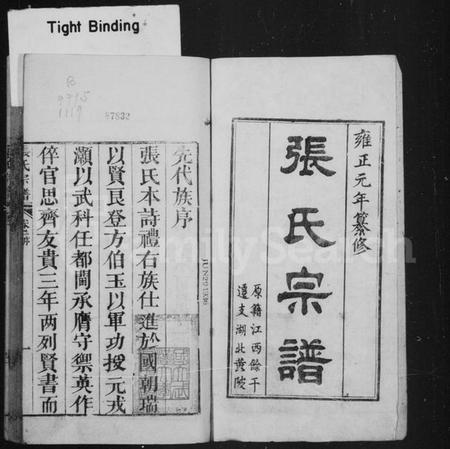 Tight Binding
雍正元年纂修
張氏宗譜
原籍江西餘干
遷支湖北黃陂
87832
JUN 29 1936
先代族序
張氏本詩禮右族仕進於國朝瑞
以賢良登方伯玉以軍功授元戎
灝以武科任都閫承膺守禦英作
倅官思齊友貴三年两列賢書而
FamilySearch